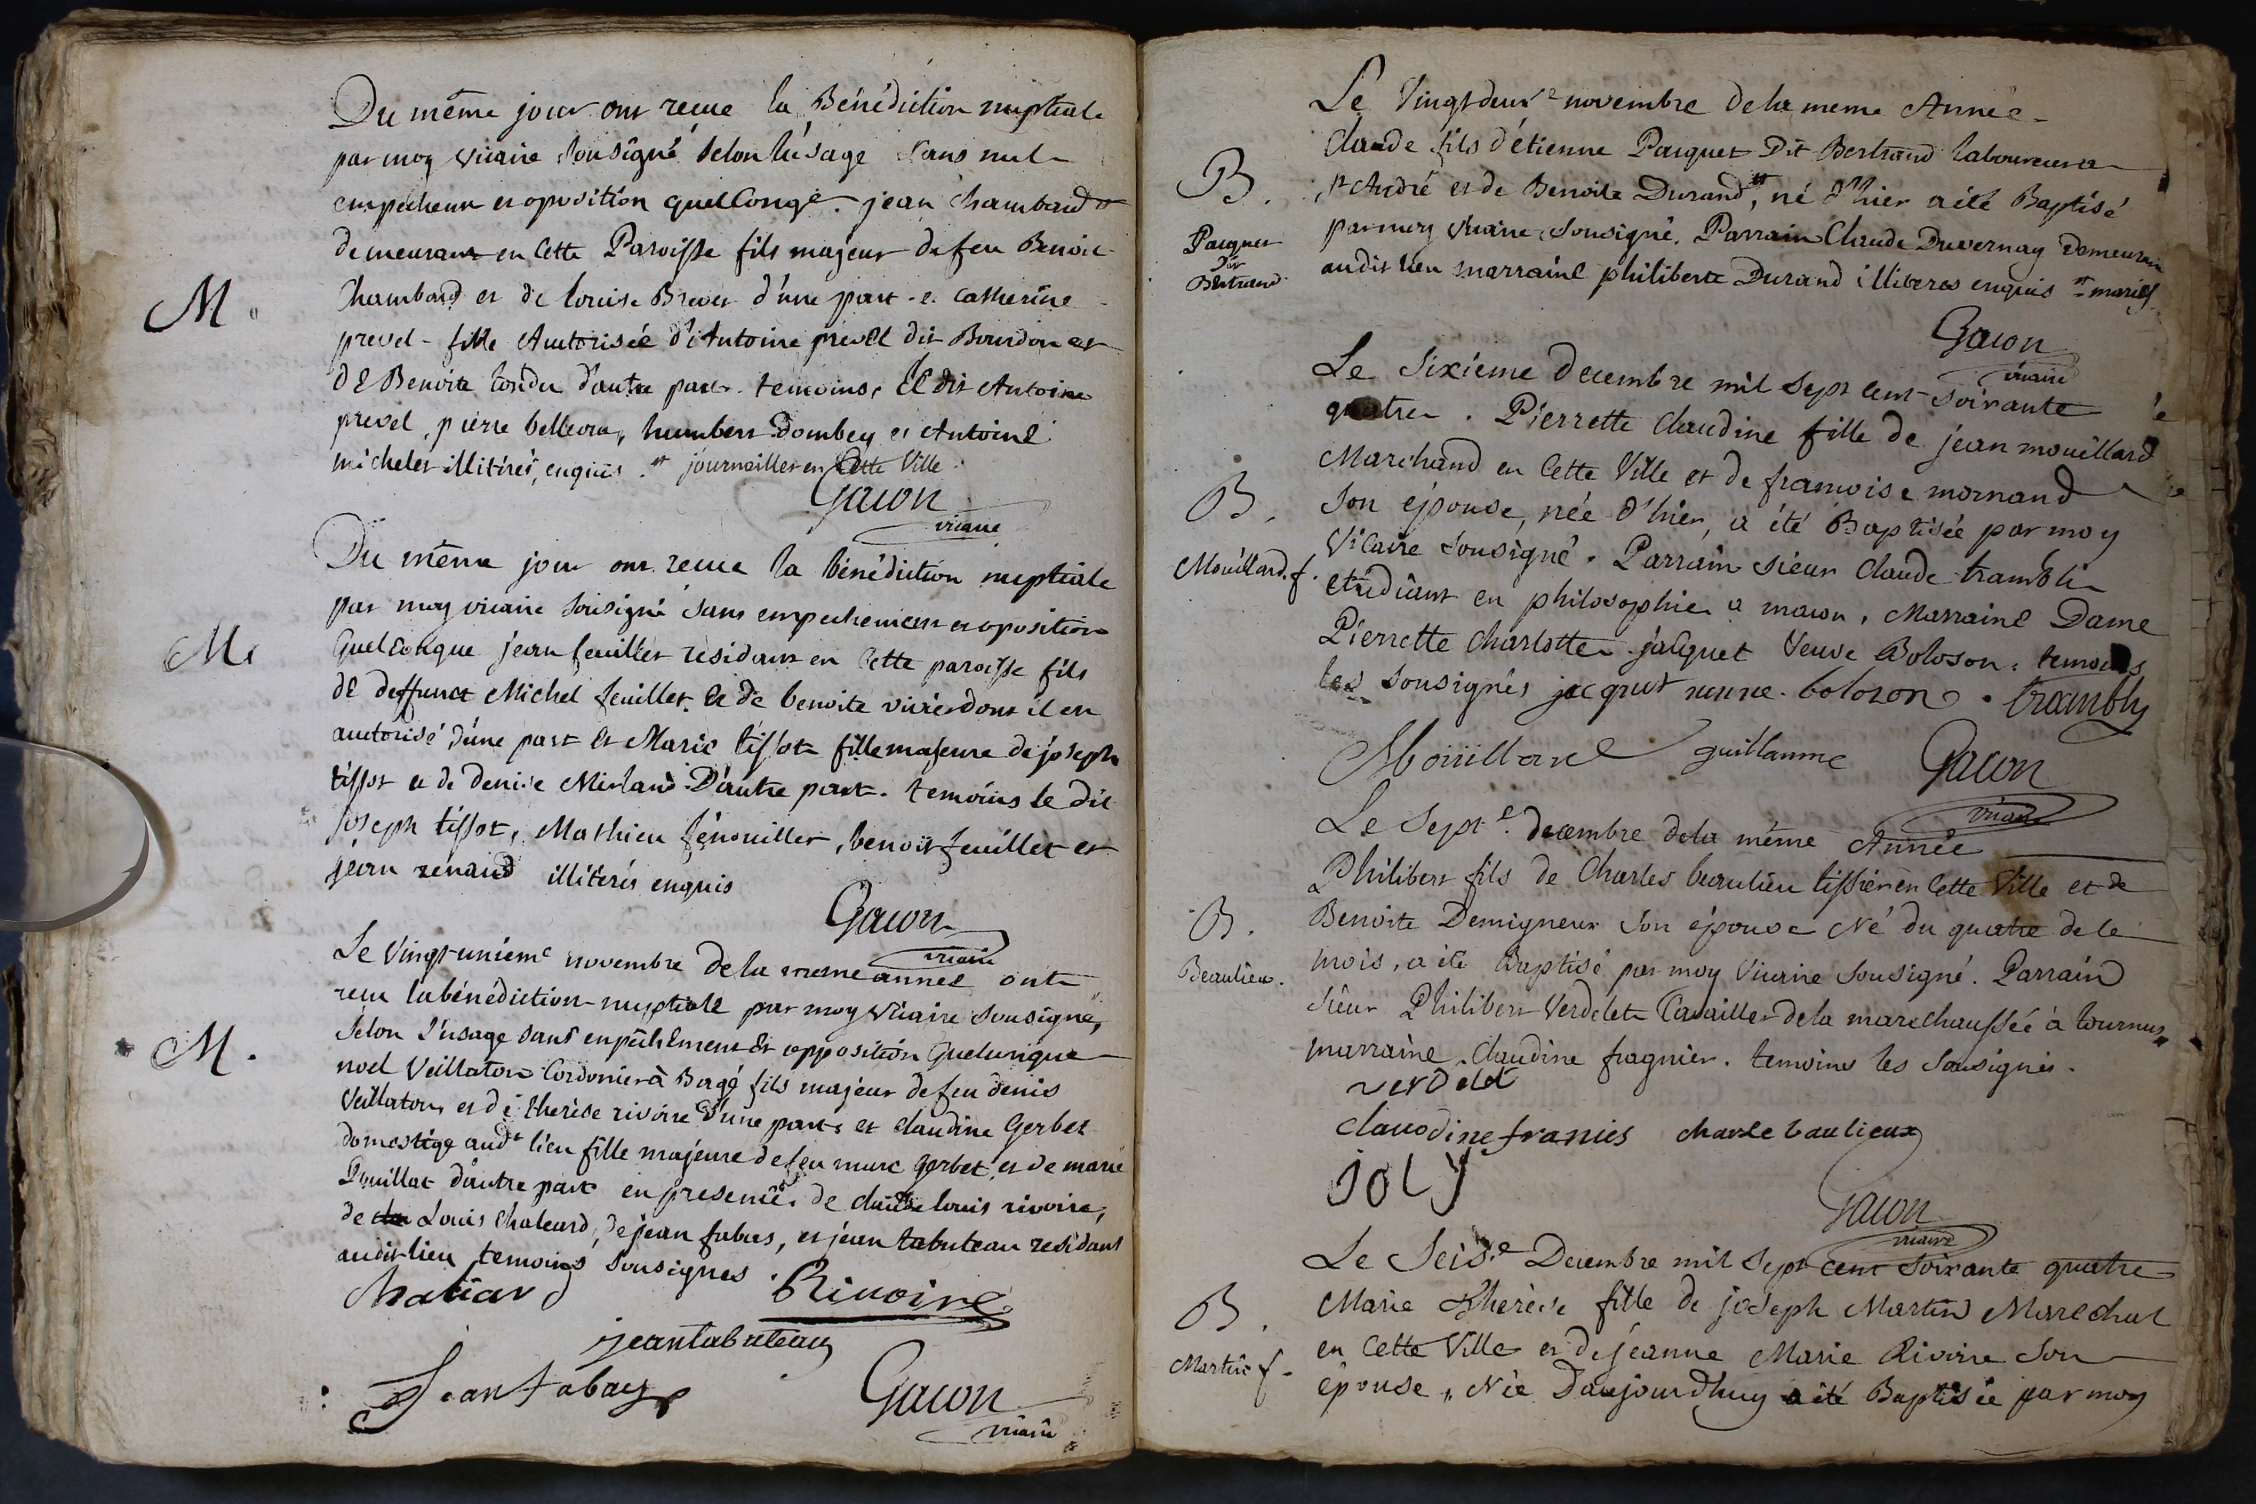 Du même jour ont recue la Bénédiction nuptiale
par moy vicaire sousigné selon l'usage sans nul
empechem et oposition quelconqe. jean chambard
demeurant en cette Paroisse fils majeur de feu Benoit
M.
Chambard et de louise Brevet d'une part. et catherine
prevel fille Autorisée d'Antoine prevel dit Bourdon et
de Benoite tondu d'autre part. temoins, le dit Antoine
prevel, pierre bellevra, humbert Dombey et Antoine
michelet illiterés, enquis. journallier en Cette Ville.
Gacon
vicaire
Du même jour ont recue la bénédiction nuptiale
par moy vicaire sousigné sans empechement et oposition
M.
Quelconque jean feuillet résidant en Cette paroisse fils
de deffunct Michel feuillet et de benoite vivier dont il est
autorisé d'une part Et Marie tissot fille majeure de joseph
tissot et de denise Merland D'autre part. temoins le dit
joseph tissot, Mathieu fénouillet, benoit feuillet et
jean rénaud illitérés enquis
Gacon
vicaire
Le vingt-unieme novembre de la meme année ont
recu la bénédiction nuptiale par moy vicaire sousigné,
selon l'usage sans enpêchement et opposition Quelunique
M.
noel Veillaton Cordonier à Bagé fils majeur de feu denis
Veillaton, et de therèse rivoire d'une part, et claudine Gerbet
domestiqe audt lieu fille majeure de feu marc gerbet, et de marie
Pouillat d'autre part en presence de claude louis rivoire,
de Louis Chaleard, de jean fabus, et jean tabuteau residant
audit lieu temoins sousignes.
Chaliard
Rivoire
jean tabuteau
Jean fabay
Gacon
vicaire
Le Vingtdeuxe novembre de la meme Année
Claude fils d'étienne Paequet Dit Bertrand laboureur a
B.
st André et de Benoite Durand, né d'hier a été Baptisé
Paiquet
dit
Bertrand.
par moy vicaire sousigné. Parrain Claude Duvernay demeurant
audit lieu marraine philiberte Durand illiteres enquis mariés
Gacon
vicaire
Le Sixieme Decembre mil Sept cent Soixante
quatre. Pierrette Claudine fille de jean mouillard
Marchand en Cette Ville et de francoise mornand
B.
Son épouse, née d'hier, a été Baptisée par moy
Mouillard. f.
Vicaire Sousigné. Parrain sieur Claude trambli
etudiant en philosophie a macon, Marraine Dame
Pierrette Charlotte jacquet Veuve Boloson. temoins
les sousignés jacquet veuve boloson. trambly
Mouillard guillaume Gacon
vicaire
Le Septe. decembre de la même Année
Philibert fils de Charles beaulieu tissier en Cette Ville et de
B.
Benoite Demigneux Son épouse Né du quatre de ce
Beaulieu.
mois, a été Baptisé par moy Vicaire Sousigné. Parrain
Sieur Philibert Verdelet Cavailler de la marechaussée à tournus
marraine Claudine fragnier. temoins les Sousignés.
verdelet
claudine franies charle baulieux
joly
Gacon
vicaire
Le Seise Decembre mil sept cent soixante quatre
B.
Marie Therèse fille de joseph Martin Marechal
en Cette Ville et de jeanne Marie Rivoire Son
Martin f.
épouse, Née D'aujourdhuy a été Baptisée par moy